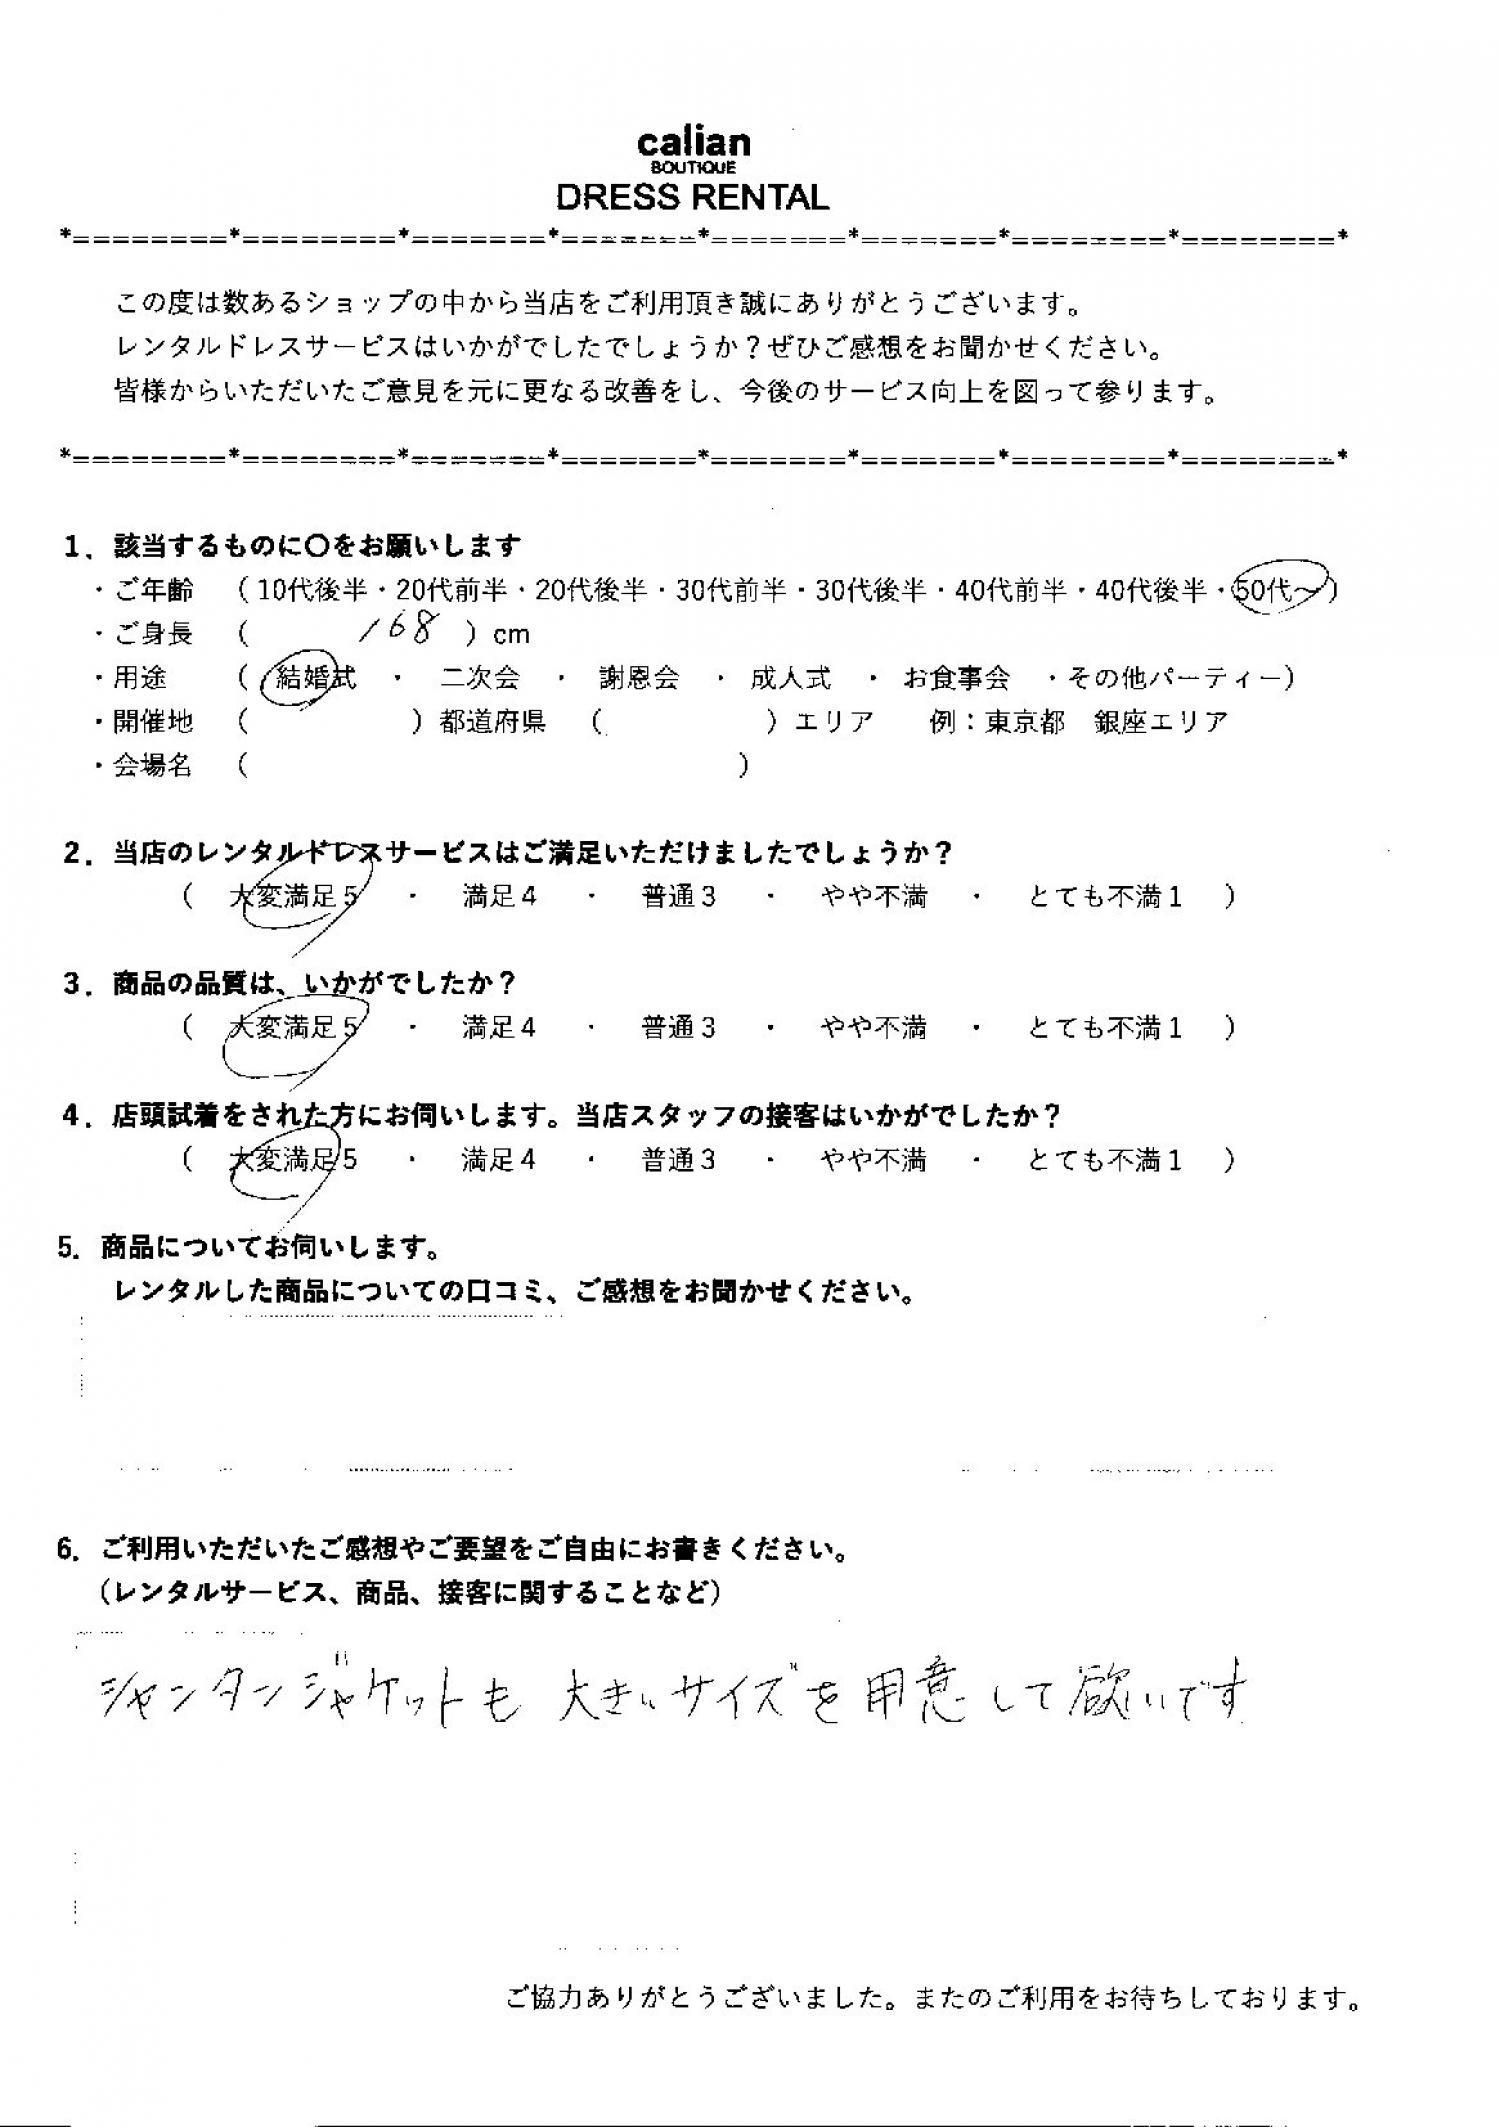 calian
BOUTIQUE
DRESS RENTAL
*========*========*=======*=======*=======*=======*========*========*
この度は数あるショップの中から当店をご利用頂き誠にありがとうございます。
レンタルドレスサービスはいかがでしたでしょうか？ぜひご感想をお聞かせください。
皆様からいただいたご意見を元に更なる改善をし、今後のサービス向上を図って参ります。
*========*========*=======*=======*=======*=======*========*========*
1．該当するものに〇をお願いします
・ご年齢 （10代後半・20代前半・20代後半・30代前半・30代後半・40代前半・40代後半・50代～）
・ご身長 （ 168 ）cm
・用途 （ 結婚式 ・ 二次会 ・ 謝恩会 ・ 成人式 ・ お食事会 ・その他パーティー）
・開催地 （ ）都道府県 （ ）エリア 例：東京都 銀座エリア
・会場名 （ ）
2．当店のレンタルドレスサービスはご満足いただけましたでしょうか？
（ 大変満足５ ・ 満足４ ・ 普通３ ・ やや不満 ・ とても不満１ ）
3．商品の品質は、いかがでしたか？
（ 大変満足５ ・ 満足４ ・ 普通３ ・ やや不満 ・ とても不満１ ）
4．店頭試着をされた方にお伺いします。当店スタッフの接客はいかがでしたか？
（ 大変満足５ ・ 満足４ ・ 普通３ ・ やや不満 ・ とても不満１ ）
5．商品についてお伺いします。
レンタルした商品についての口コミ、ご感想をお聞かせください。
6．ご利用いただいたご感想やご要望をご自由にお書きください。
（レンタルサービス、商品、接客に関することなど）
シャンタンジャケットも 大きいサイズを用意して欲いです
ご協力ありがとうございました。またのご利用をお待ちしております。